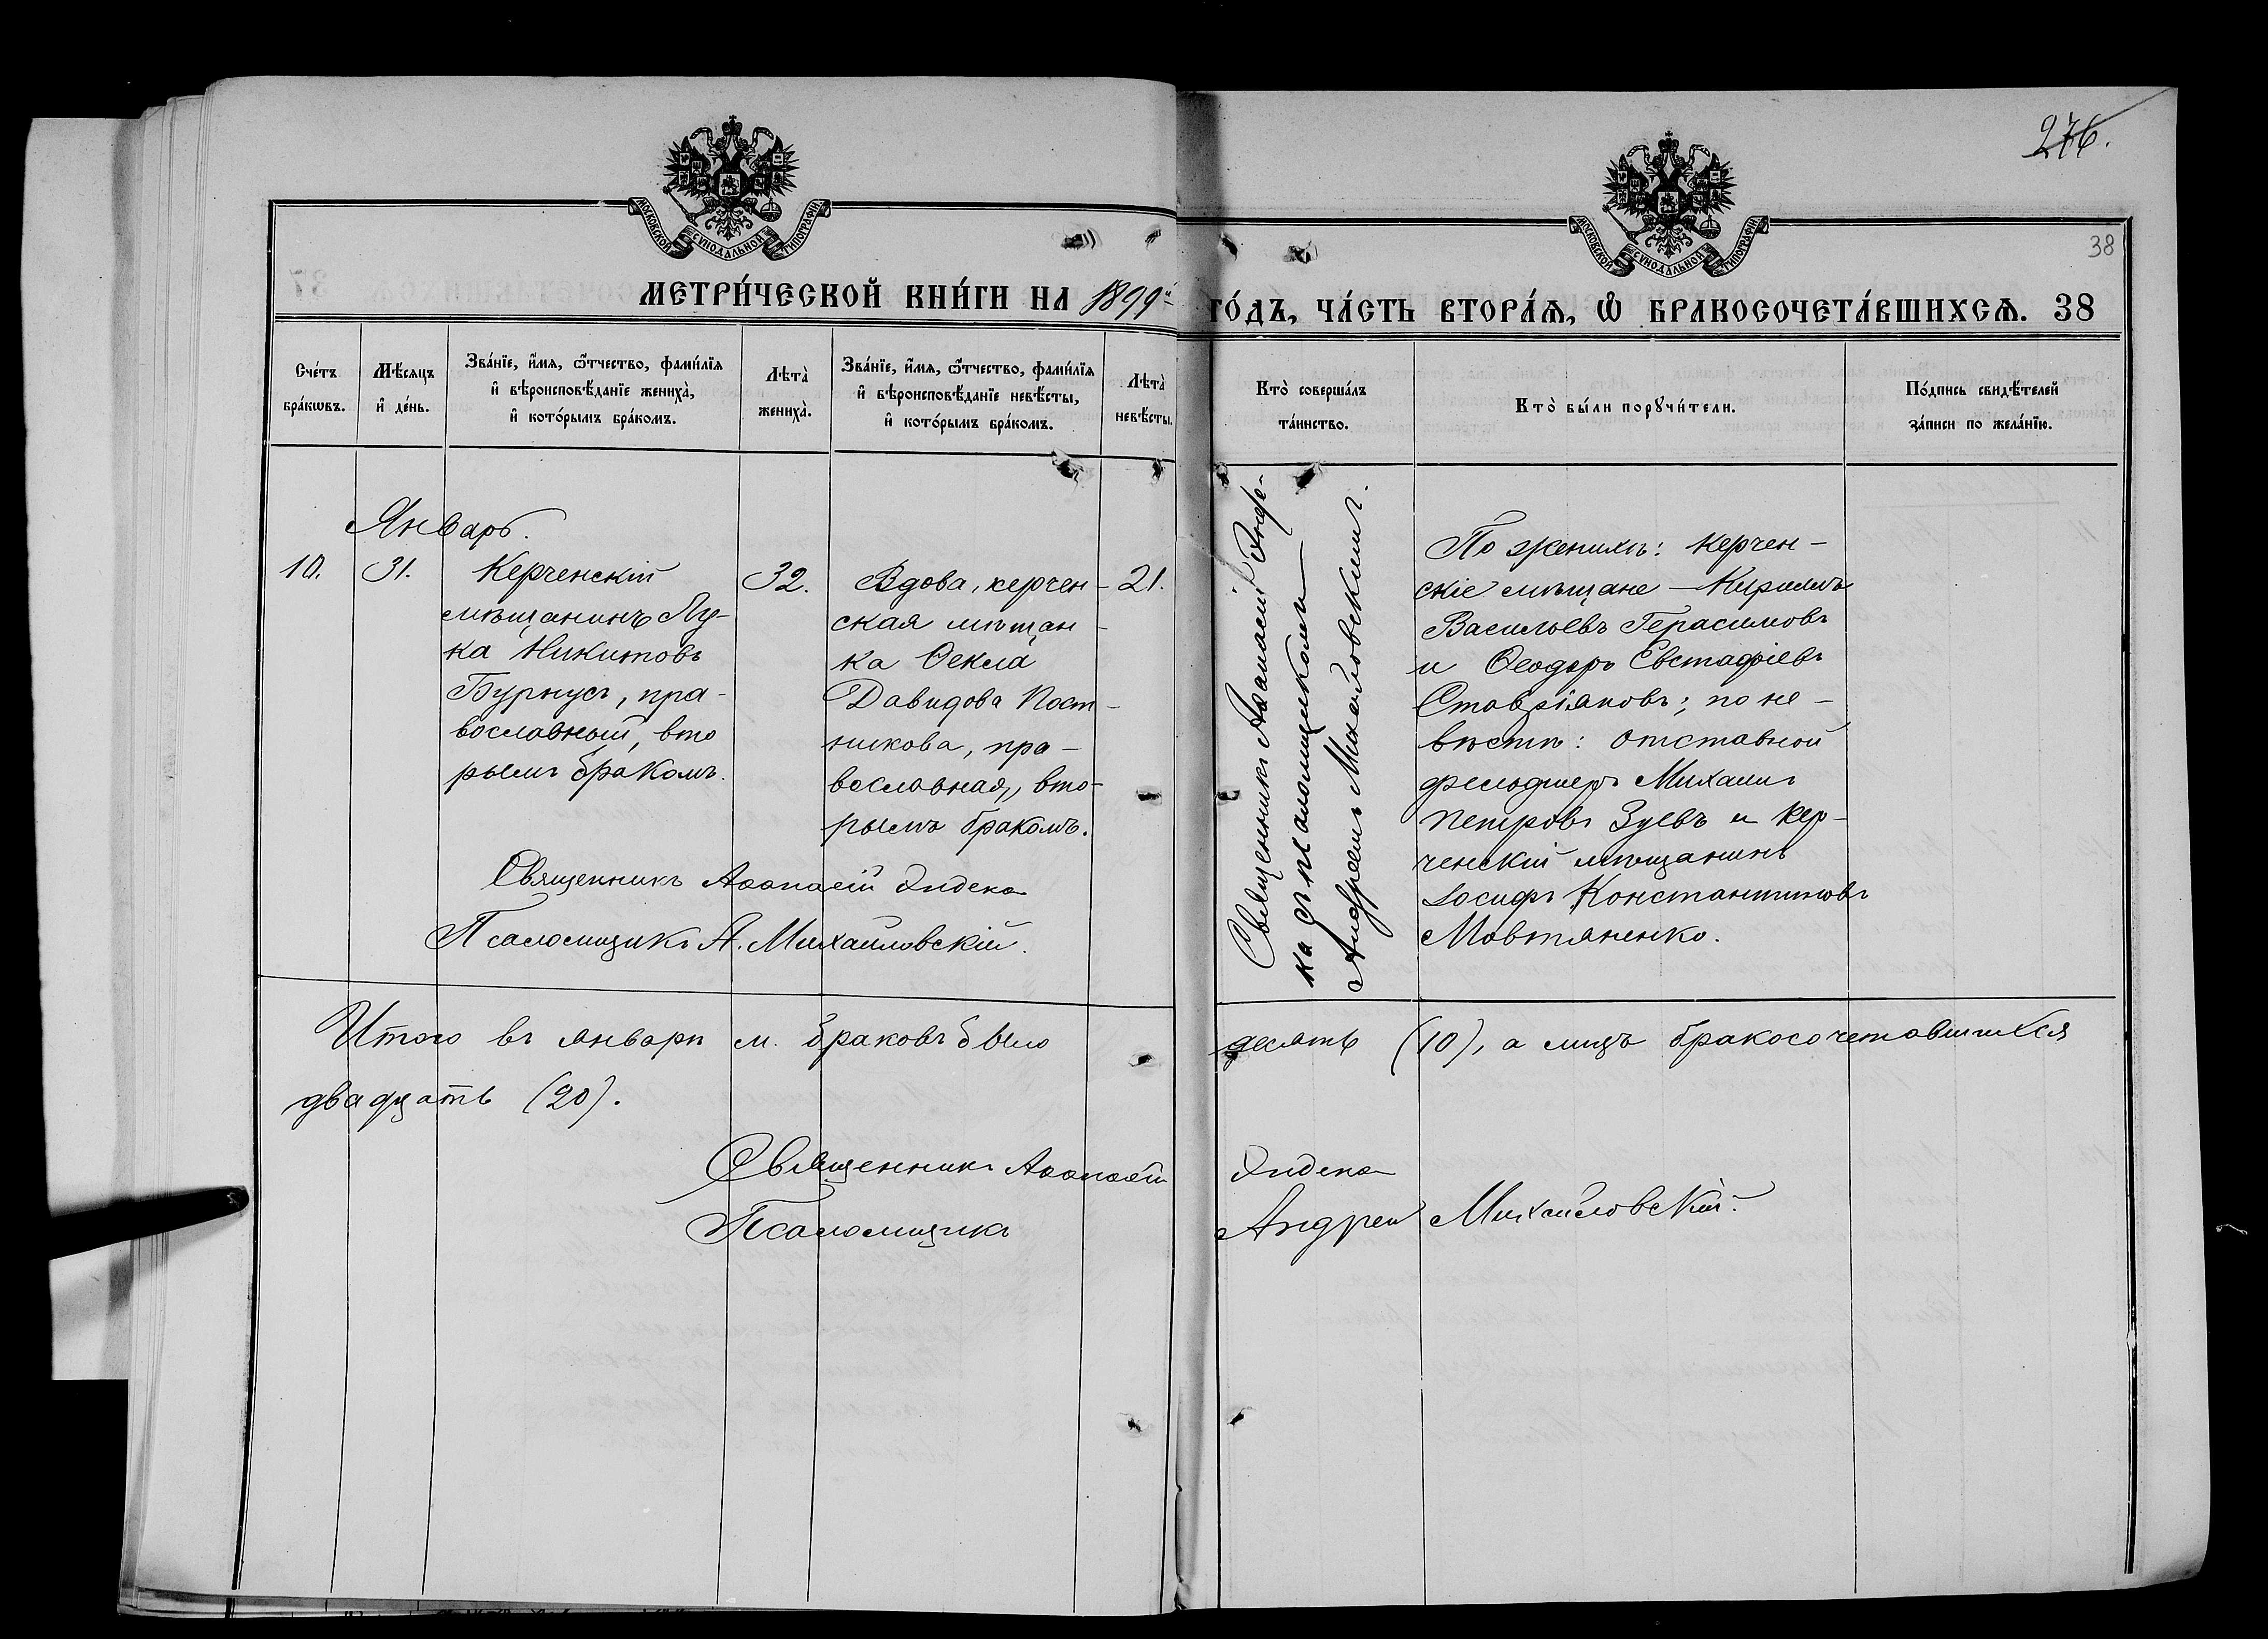 276.
МОСКОВСКОЙ СѴНОДАЛЬНОЙ ТИПОГРАФІИ
МОСКОВСКОЙ СѴНОДАЛЬНОЙ ТИПОГРАФІИ
38
МЕТРИ́ЧЕСКОЙ КНИ́ГИ НА 1899й ГО́ДЪ, ЧА́СТЬ ВТОРА́Ѧ, Ѽ БРАКОСОЧЕТА́ВШИХСѦ. 38
Сче́тъ
бра́кѡвъ.
Мѣ́сяцъ
и҆ де́нь.
Зва́нїе, и҆́мѧ, ѻ҆́тчество, фами́лїѧ
и҆ вѣроисповѣ́данїе жениха̀,
и҆ кото́рымъ бра́комъ.
Лѣта̀
жениха̀.
Зва́нїе, и҆́мѧ, ѻ҆́тчество, фами́лїѧ
и҆ вѣроисповѣ́данїе невѣ́сты,
и҆ кото́рымъ бра́комъ.
Лѣта̀
невѣ́сты.
Кто̀ соверша́лъ
та́инство.
Кто̀ бы́ли порꙋчи́тели.
По́дпись свидѣ́телей
за́писи по жела́нїю.
Январь.
10.
31.
Керченскій
мѣщанинъ Лу-
ка Никитовъ
Бурнусъ, пра-
вославный, вто
рымъ бракомъ.
32.
Вдова, керчен-
ская мѣщан-
ка Ѳекла
Давидова Пост-
никова, пра-
вославная, вто-
рымъ бракомъ.
21.
Священникъ Аѳанасій Энде-
ка съ псаломщикомъ
Андреемъ Михайловскимъ.
По женихѣ: керчен-
скіе мѣщане - Кириллъ
Васильевъ Герасимовъ
и Ѳеодоръ Евстафіевъ
Ставріановъ; по не-
вѣстѣ: отставной
фельдшеръ Михаилъ
Петровъ Зуевъ и кер-
ченскій мѣщанинъ
Іосифъ Константиновъ
Мовтяненко.
Священникъ Аѳанасій Эндека
Псаломщикъ А. Михайловскій.
Итого въ январѣ м. браковъ было десять (10), а лицъ бракосочетавшихся
двадцать (20).
Священникъ Аѳанасій Эндека
Псаломщикъ Андрей Михайловскій.